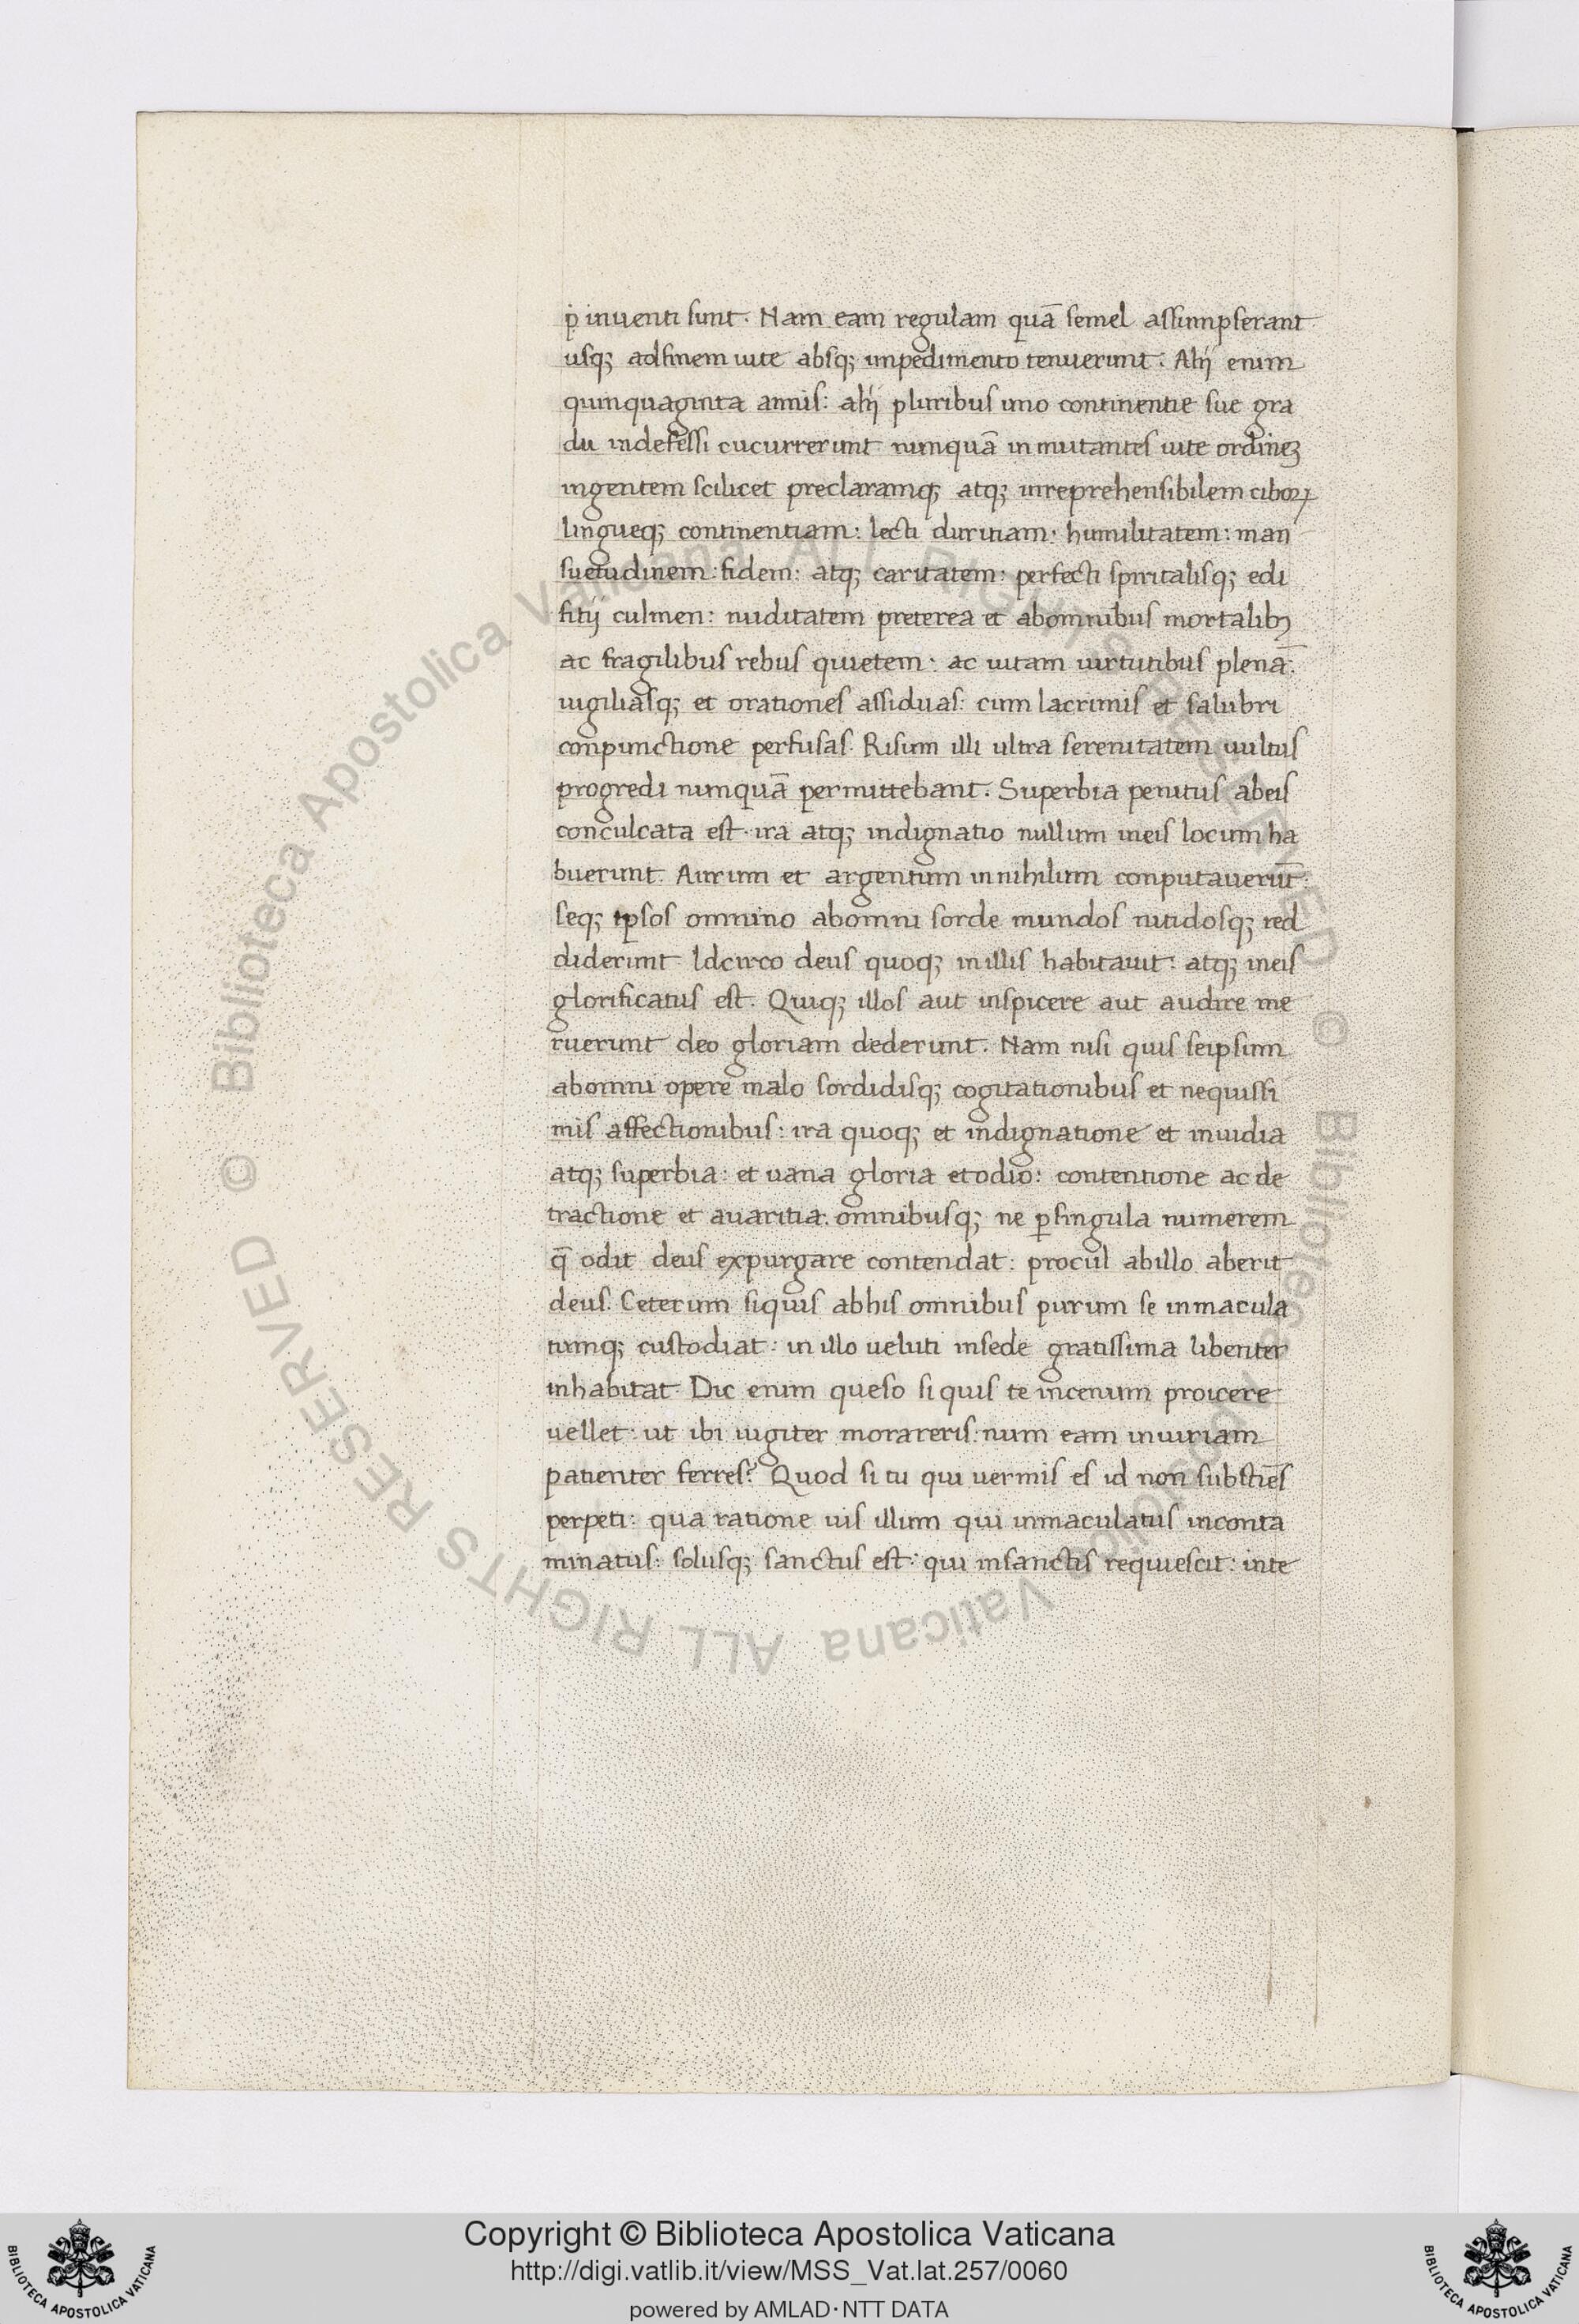 p̱ inuenti sunt. Nam eam regulam quā semel assumpserant
usq; adfinem uite absq; impedimento tenuerunt. Alij enim
quinquaginta annis: alij pluribus uno continentie sue gra
du indefessi cucurrerunt numquā inmutantes uite ordinez
ingentem scilicet preclaramq; atq; inreprehensibilem ciboꝝ
lingueq; continentiam: lecti duritiam: humilitatem: man
suetudinem: fidem: atq; caritatem: perfecti spiritalisq; edi
fitij culmen: nuditatem preterea et abomnibus mortalibꝫ
ac fragilibus rebus quietem: ac uitam uirtutibus plenā:
uigiliasq; et orationes assiduas: cum lacrimis et salubri
conpunctione perfusas. Risum illi ultra serenitatem uultus
progredi numquā permittebant. Superbia penitus abeis
conculcata est. ira atq; indignatio nullum ineis locum ha
buerunt. Aurum et argentum innihilum conputauerūt:
seq; ipsos omnino abomni sorde mundos nitidosq; red
diderunt. Idcirco deus quoq; inillis habitauit: atq; ineis
glorificatus est. Quiq; illos aut inspicere aut audire me
ruerunt deo gloriam dederunt. Nam nisi quis seipsum
abomni opere malo sordidisq; cogitationibus et nequissi
mis affectionibus: ira quoq; et indignatione et inuidia
atq; superbia: et uana gloria etodio: contentione ac de
tractione et auaritia. omnibusq; ne ꝑsingula numerem
q̄ odit deus expurgare contendat: procul abillo aberit
deus. Ceterum siquis abhis omnibus purum se inmacula
tumq; custodiat: in illo ueluti insede gratissima libenter
inhabitat. Dic enim queso si quis te incenum proicere
uellet: ut ibi iugiter morareris: num eam iniuriam
patienter ferres? Quod si tu qui uermis es id non substies
perpeti: qua ratione uis illum qui inmaculatus inconta
minatus: solusq; sanctus est: qui insanctis requiescit: inte
© Biblioteca Apostolica Vaticana ALL RIGHTS RESERVED
© Biblioteca Apostolica Vaticana ALL RIGHTS RESERVED
Copyright © Biblioteca Apostolica Vaticana
http://digi.vatlib.it/view/MSS_Vat.lat.257/0060
powered by AMLAD·NTT DATA
BIBLIOTECA APOSTOLICA VATICANA
BIBLIOTECA APOSTOLICA VATICANA